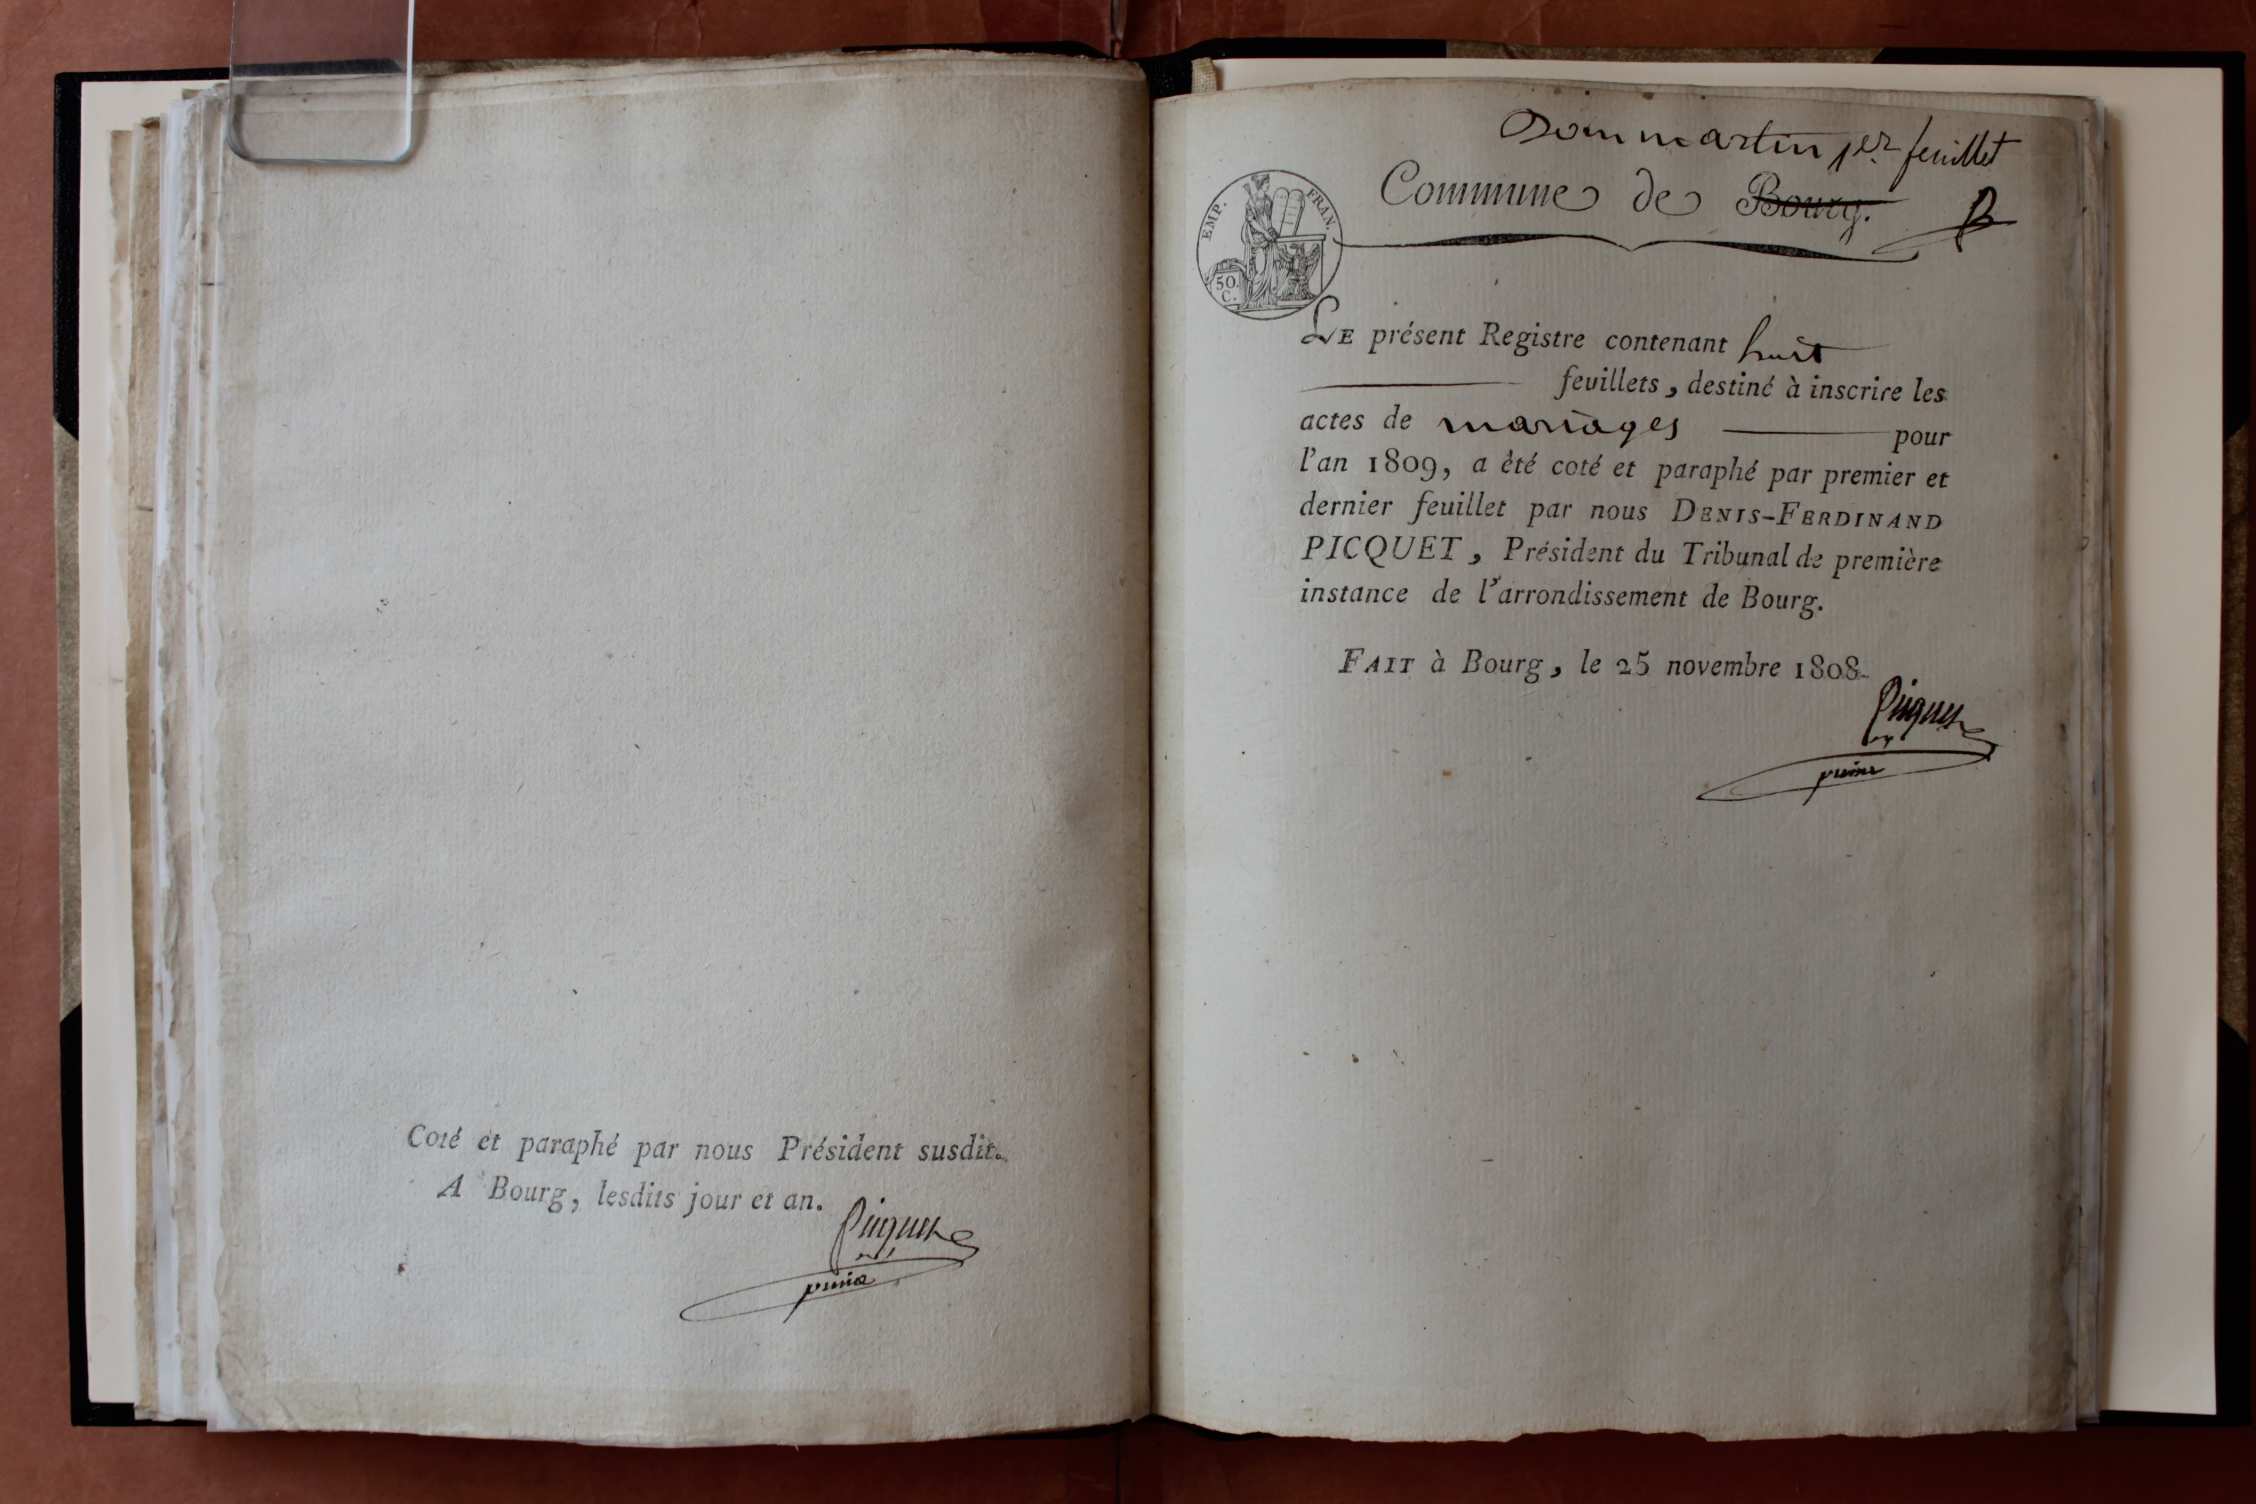 Coté et paraphé par nous Président susdit.
A Bourg, lesdits jour et an.
Picquet
Dommartin 1er feuillet
Commune de Bourg.
EMP. FRAN.
50.
C.
LE présent Registre contenant huit
feuillets, destiné à inscrire les
actes de mariages pour
l'an 1809, a été coté et paraphé par premier et
dernier feuillet par nous DENIS-FERDINAND
PICQUET, Président du Tribunal de première
instance de l'arrondissement de Bourg.
FAIT à Bourg, le 25 novembre 1808.
Picquet